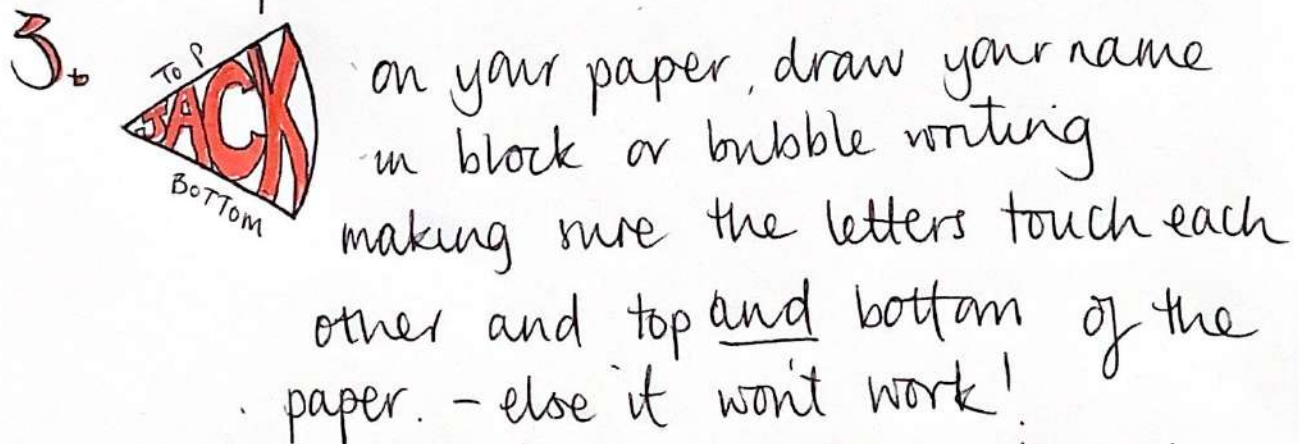 3.
TOP
JACK
BOTTOM
on your paper, draw your name
in block or bubble writing
making sure the letters touch each
other and top and bottom of the
paper. - else it won't work!